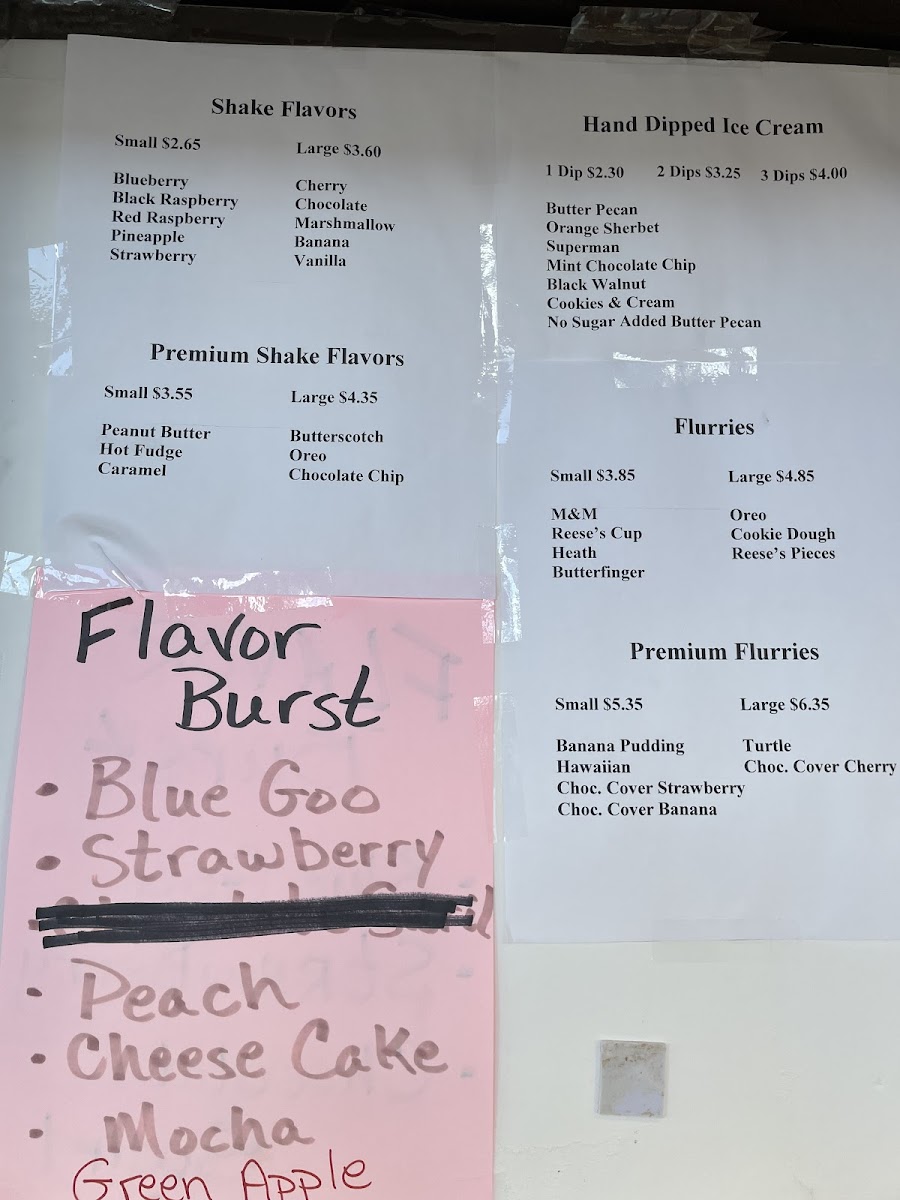 Shake Flavors
Small $2.65 Large $3.60
Blueberry Cherry
Black Raspberry Chocolate
Red Raspberry Marshmallow
Pineapple Banana
Strawberry Vanilla
Premium Shake Flavors
Small $3.55 Large $4.35
Peanut Butter Butterscotch
Hot Fudge Oreo
Caramel Chocolate Chip
Hand Dipped Ice Cream
1 Dip $2.30 2 Dips $3.25 3 Dips $4.00
Butter Pecan
Orange Sherbet
Superman
Mint Chocolate Chip
Black Walnut
Cookies & Cream
No Sugar Added Butter Pecan
Flurries
Small $3.85 Large $4.85
M&M Oreo
Reese's Cup Cookie Dough
Heath Reese's Pieces
Butterfinger
Premium Flurries
Small $5.35 Large $6.35
Banana Pudding Turtle
Hawaiian Choc. Cover Cherry
Choc. Cover Strawberry
Choc. Cover Banana
Flavor
Burst
• Blue Goo
• Strawberry
• Peach
• Cheese Cake
• Mocha
Green Apple